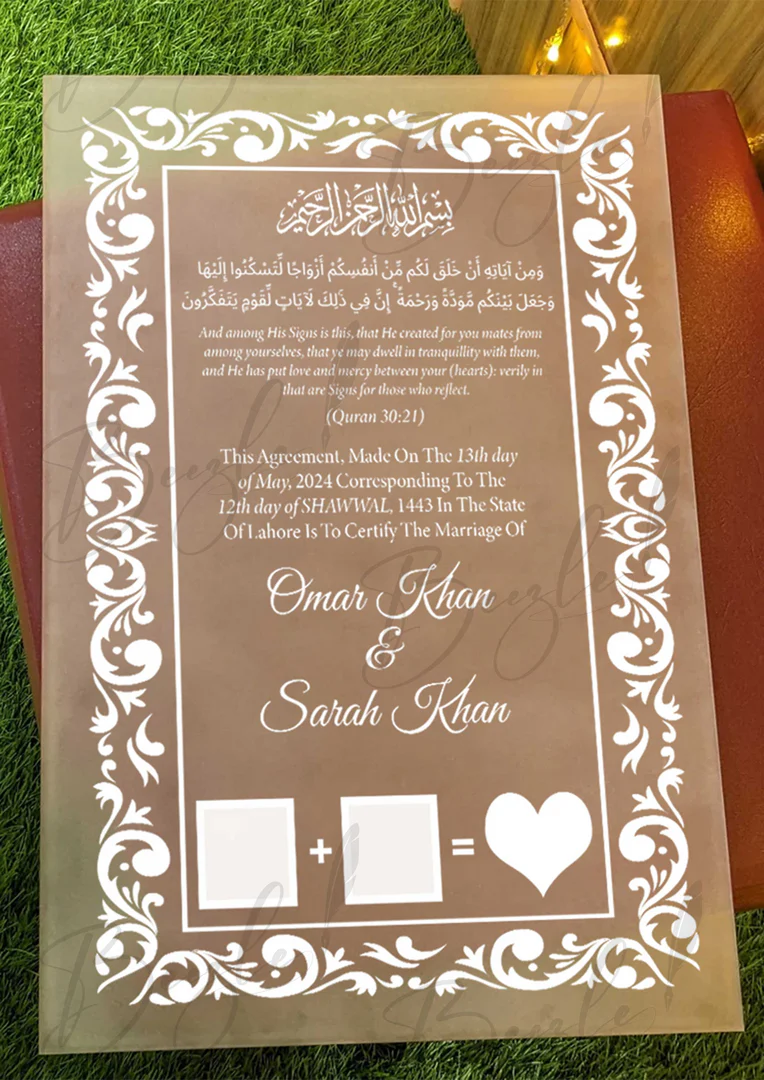 بسم الله الرحمن الرحيم
وَمِنْ آيَاتِهِ أَنْ خَلَقَ لَكُم مِّنْ أَنفُسِكُمْ أَزْوَاجًا لِّتَسْكُنُوا إِلَيْهَا
وَجَعَلَ بَيْنَكُم مَّوَدَّةً وَرَحْمَةً ۚ إِنَّ فِي ذَٰلِكَ لَآيَاتٍ لِّقَوْمٍ يَتَفَكَّرُونَ
And among His Signs is this, that He created for you mates from
among yourselves, that ye may dwell in tranquillity with them,
and He has put love and mercy between your (hearts): verily in
that are Signs for those who reflect.
(Quran 30:21)
This Agreement, Made On The 13th day
of May, 2024 Corresponding To The
12th day of SHAWWAL, 1443 In The State
Of Lahore Is To Certify The Marriage Of
Omar Khan
&
Sarah Khan
+ =
Beezle!
Beezle!
Beezle!
Beezle!
Beezle!
Beezle!